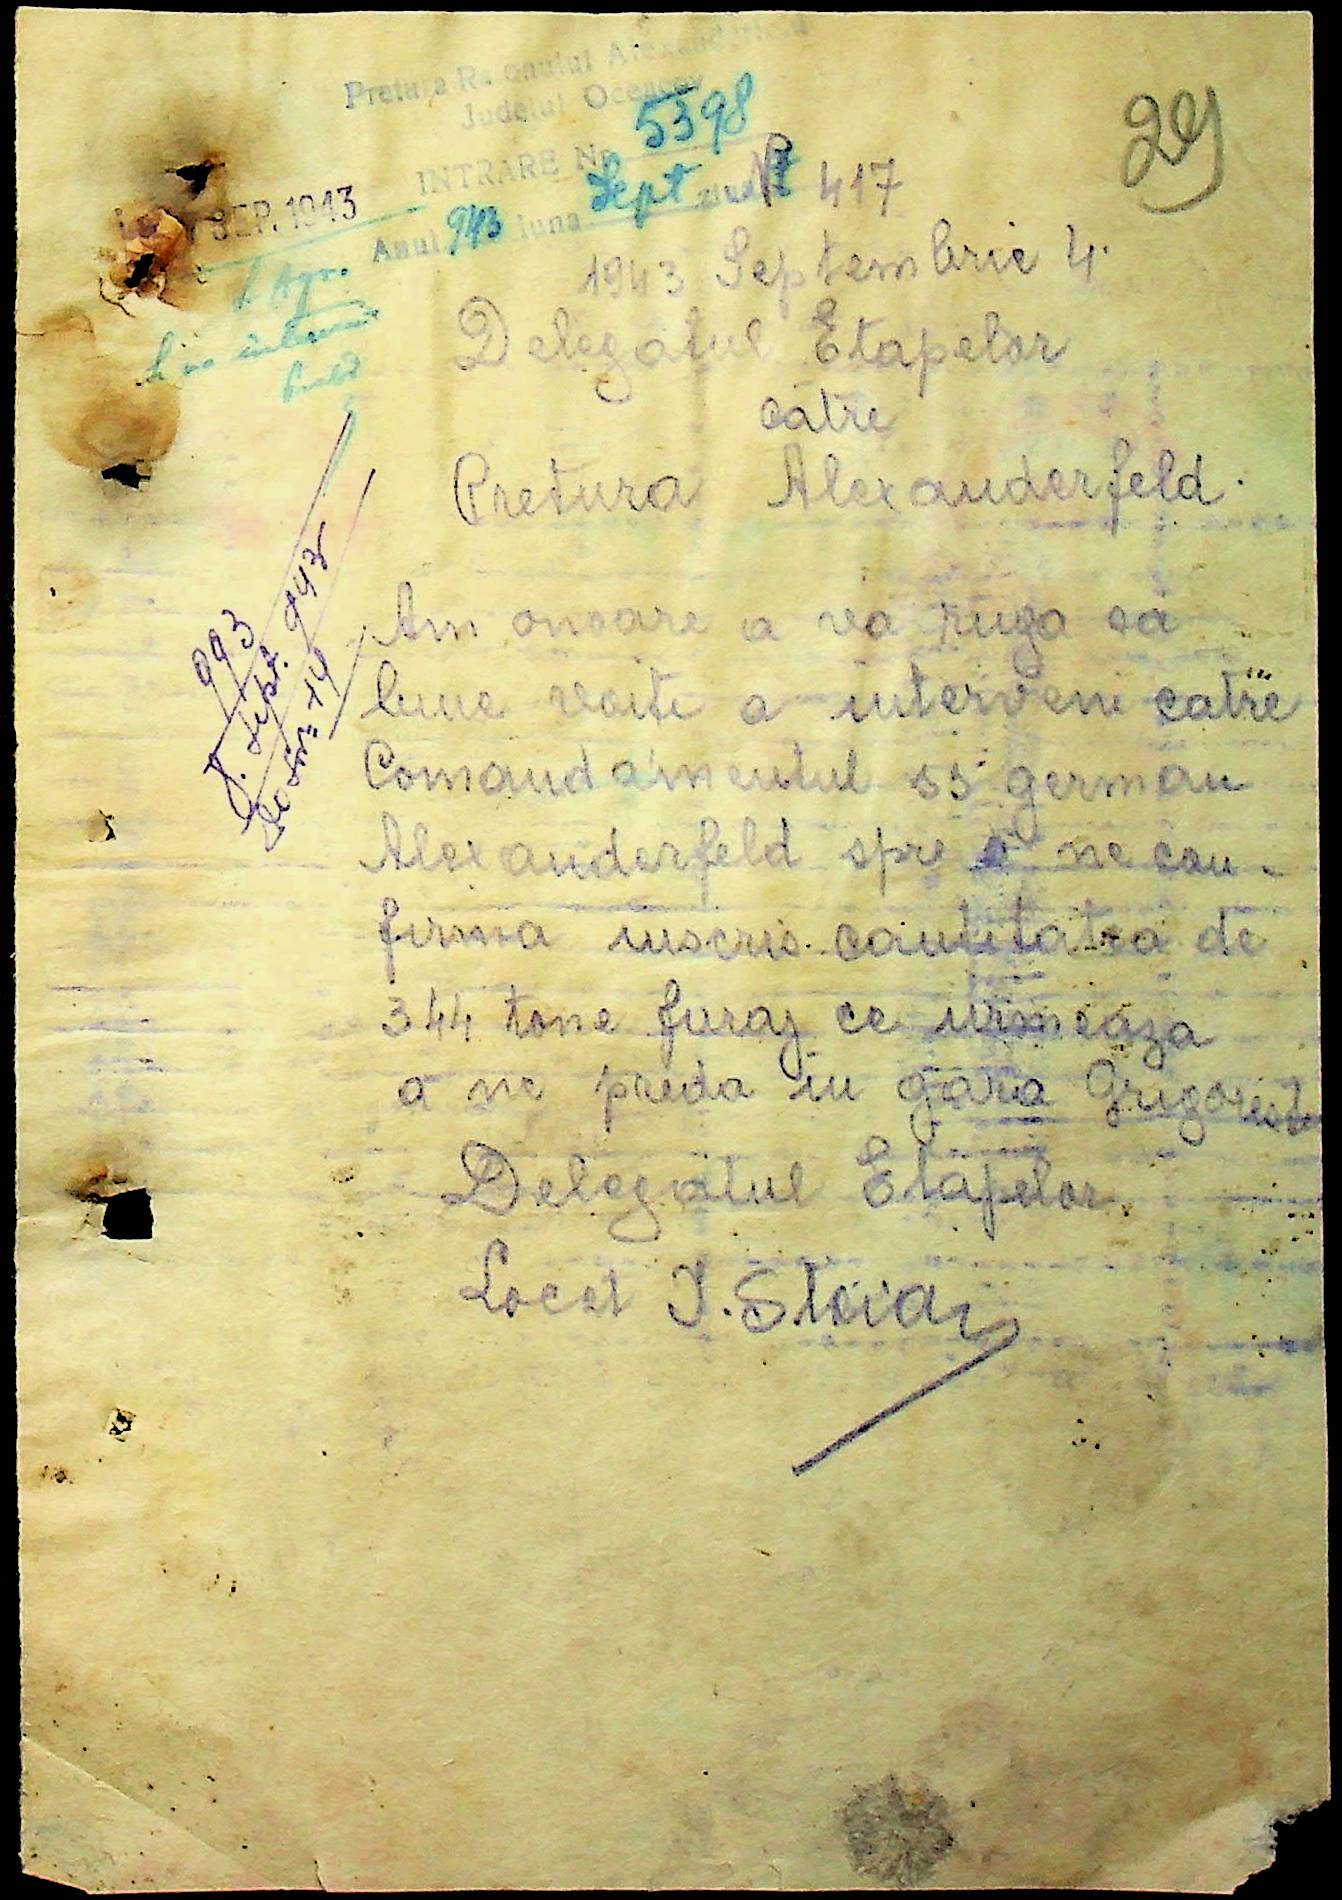 Pretura Raionului Alexanderfeld
Judetul Oceacov
INTRARE Nr. 5398
Anul 943 luna Sept ziua
SEP. 1943
29
Nr 417
1943 Septembrie 4.
Delegatul Etapelor
catre
Pretura Alexanderfeld.
993
Sept. 943
Am onoare a va ruga sa
bine voiti a interveni catre
Comandamentul SS german
Alexanderfeld spre a ne con-
firma inscris cantitatea de
344 tone furaj ce urmeaza
a ne preda in gara Grigoresti
Delegatul Etapelor
Locot I. Stoian